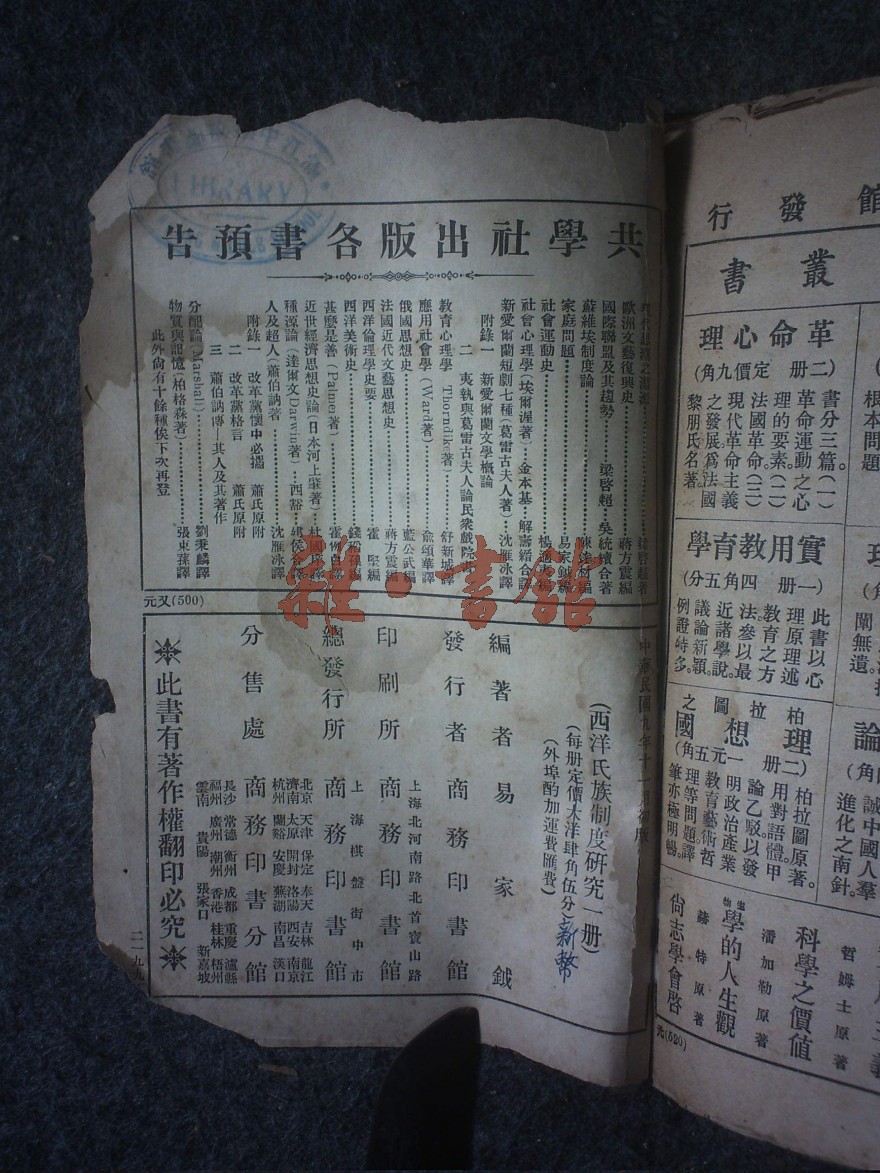 LIBRARY
共學社出版各書預告
歐洲文藝復興史 蔣方震編
國際聯盟及其趨勢 梁啓超 吳統續合著
蘇維埃制度論
家庭問題 易家鉞編
社會運動史
社會心理學(埃爾渥著) 金本基 解壽縉合譯
新愛爾蘭短劇七種(葛雷古夫人著) 沈雁冰譯
附錄一 新愛爾蘭文學槪論
二 夷執與葛雷古夫人論民衆戲院書
教育心理學(Thorndik著) 舒新城譯
應用社會學(Ward著) 兪頌華譯
俄國思想史 藍公武編
法國近代文藝思想史 蔣方震編
西洋倫理學史要
西洋美術史
甚麼是善(Palmer著)
近世經濟思想史論(日本河上肇著)
種源論(達爾文Darwin著)
人及超人(蕭伯訥著) 沈雁冰譯
附錄一 改革黨懷中必攜 蕭氏原附
二 改革黨格言 蕭氏原附
三 蕭伯訥傳—其人及其著作
分配論(Marshall) 劉秉麟譯
物質與記憶(柏格森著) 張東蓀譯
此外尙有十餘種俟下次再登
元又(500)
雜·書館
中華民國九年十一月初版
(西洋氏族制度研究一册)
(每册定價大洋肆角伍分)
新幣
(外埠酌加運費匯費)
編著者 易家鉞
發行者 商務印書館
上海北河南路北首寶山路
印刷所 商務印書館
上海棋盤街中市
總發行所 商務印書館
北京 天津 保定 奉天 吉林 龍江
濟南 太原 開封 洛陽 西安 南京
杭州 蘭谿 安慶 蕪湖 南昌 漢口
分售處 商務印書分館
長沙 常德 衡州 成都 重慶 瀘縣
福州 廣州 潮州 香港 桂林 梧州
雲南 貴陽 張家口 新嘉坡
此書有著作權翻印必究
二一九九
館發行
叢書
根本問題
革命心理
(二册 定價九角)
書分三篇(一)
革命運動之心
理的要素。(二)
法國革命。(三)
現代革命主義
之發展。爲法國
黎朋氏名著。
闡無遺。
實用教育學
(一册 四角五分)
此書以心
理原理述
教育之方
法。參以最
近諸學說。
議論新穎。
例證特多。
論
誠中國人羣
進化之南針。
柏拉圖之理想國
(二册 一元五角)
柏拉圖原著。
用對語體。甲
論乙駁以發
明政治產業
教育藝術哲
理等問題。譯
筆亦極明暢。
哲姆士原著
科學之價値
潘加勒原著
生物學的人生觀
赫特原著
尙志學會啓
元(520)